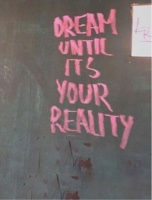 DREAM
UNTIL
ITS
YOUR
REALITY
L
R